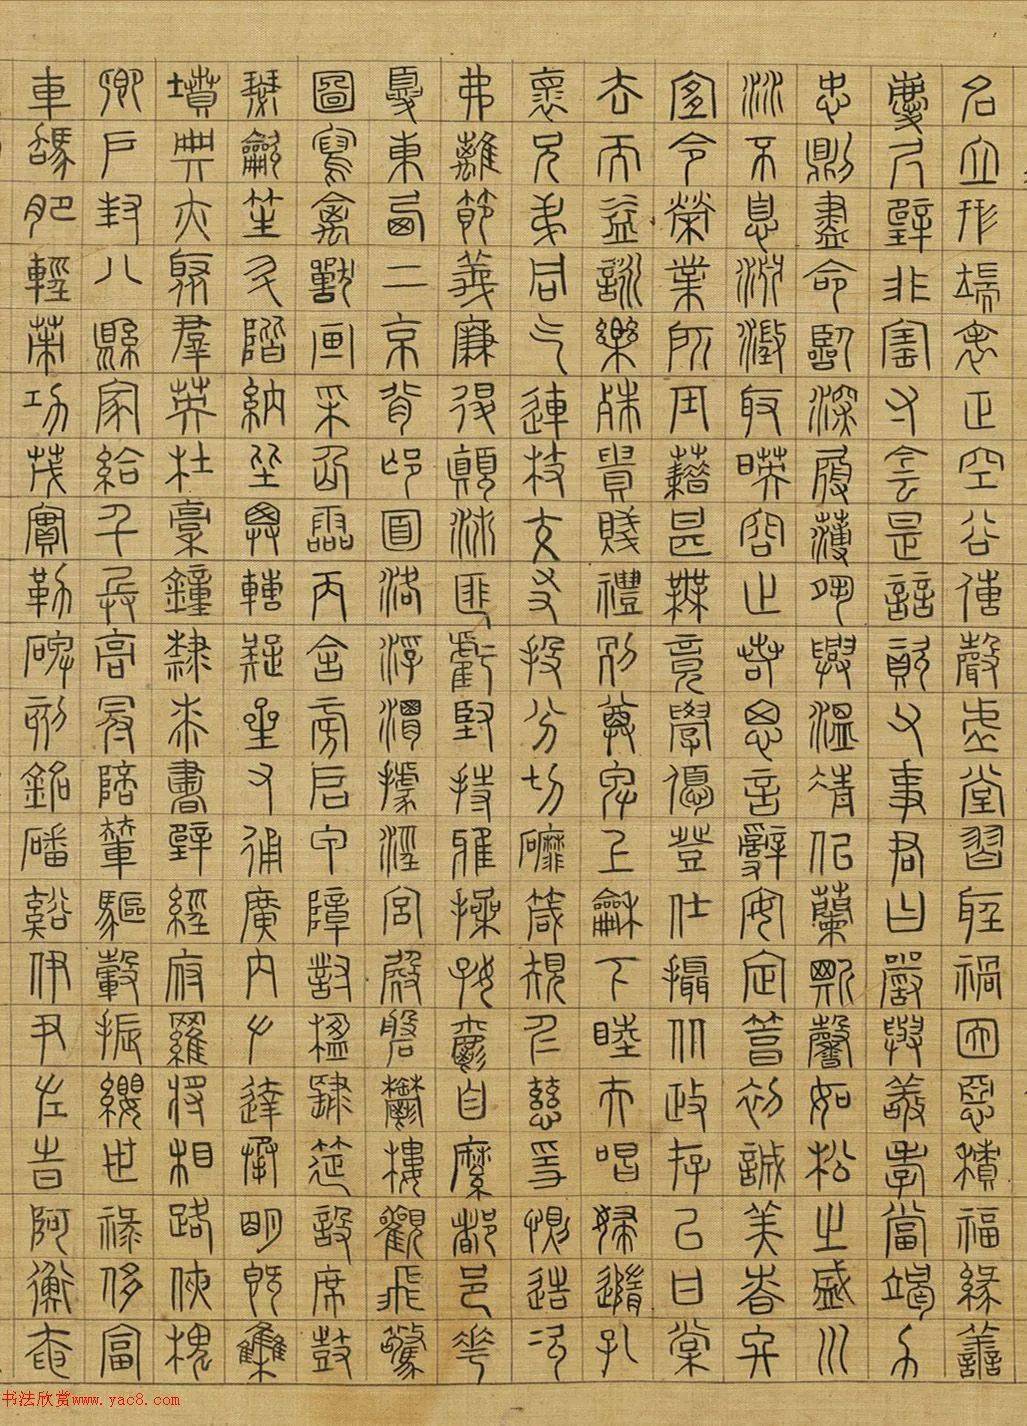 名立形端表正空谷傳聲虛堂習聽禍因惡積福緣善
慶尺璧非寶寸陰是競資父事君曰嚴與敬孝當竭力
忠則盡命臨深履薄夙興溫凊似蘭斯馨如松之盛川
流不息淵澄取暎容止若思言辭安定篤初誠美慎終
宜令榮業所基藉甚無竟學優登仕攝從政存以甘棠
去而益詠樂殊貴賤禮別尊卑上和下睦夫唱婦隨孔
懷兄弟同氣連枝交友投分切磨箴規仁慈隱惻造次
弗離節義廉退顛沛匪虧堅持雅操好爵自縻都邑華
夏東西二京背邙面洛浮渭據涇宮殿盤鬱樓觀飛驚
圖寫禽獸畫采仙靈丙舍傍啟甲帳對楹肆筵設席鼓
瑟龡笙升階納陛弁轉疑星右通廣內左達承明既集
墳典亦聚群英杜稾鐘隸漆書壁經府羅將相路俠槐
卿戶封八縣家給千兵高冠陪輦驅轂振纓世祿侈富
車駕肥輕策功茂實勒碑刻銘磻谿伊尹佐時阿衡奄
书法欣赏www.yac8.com